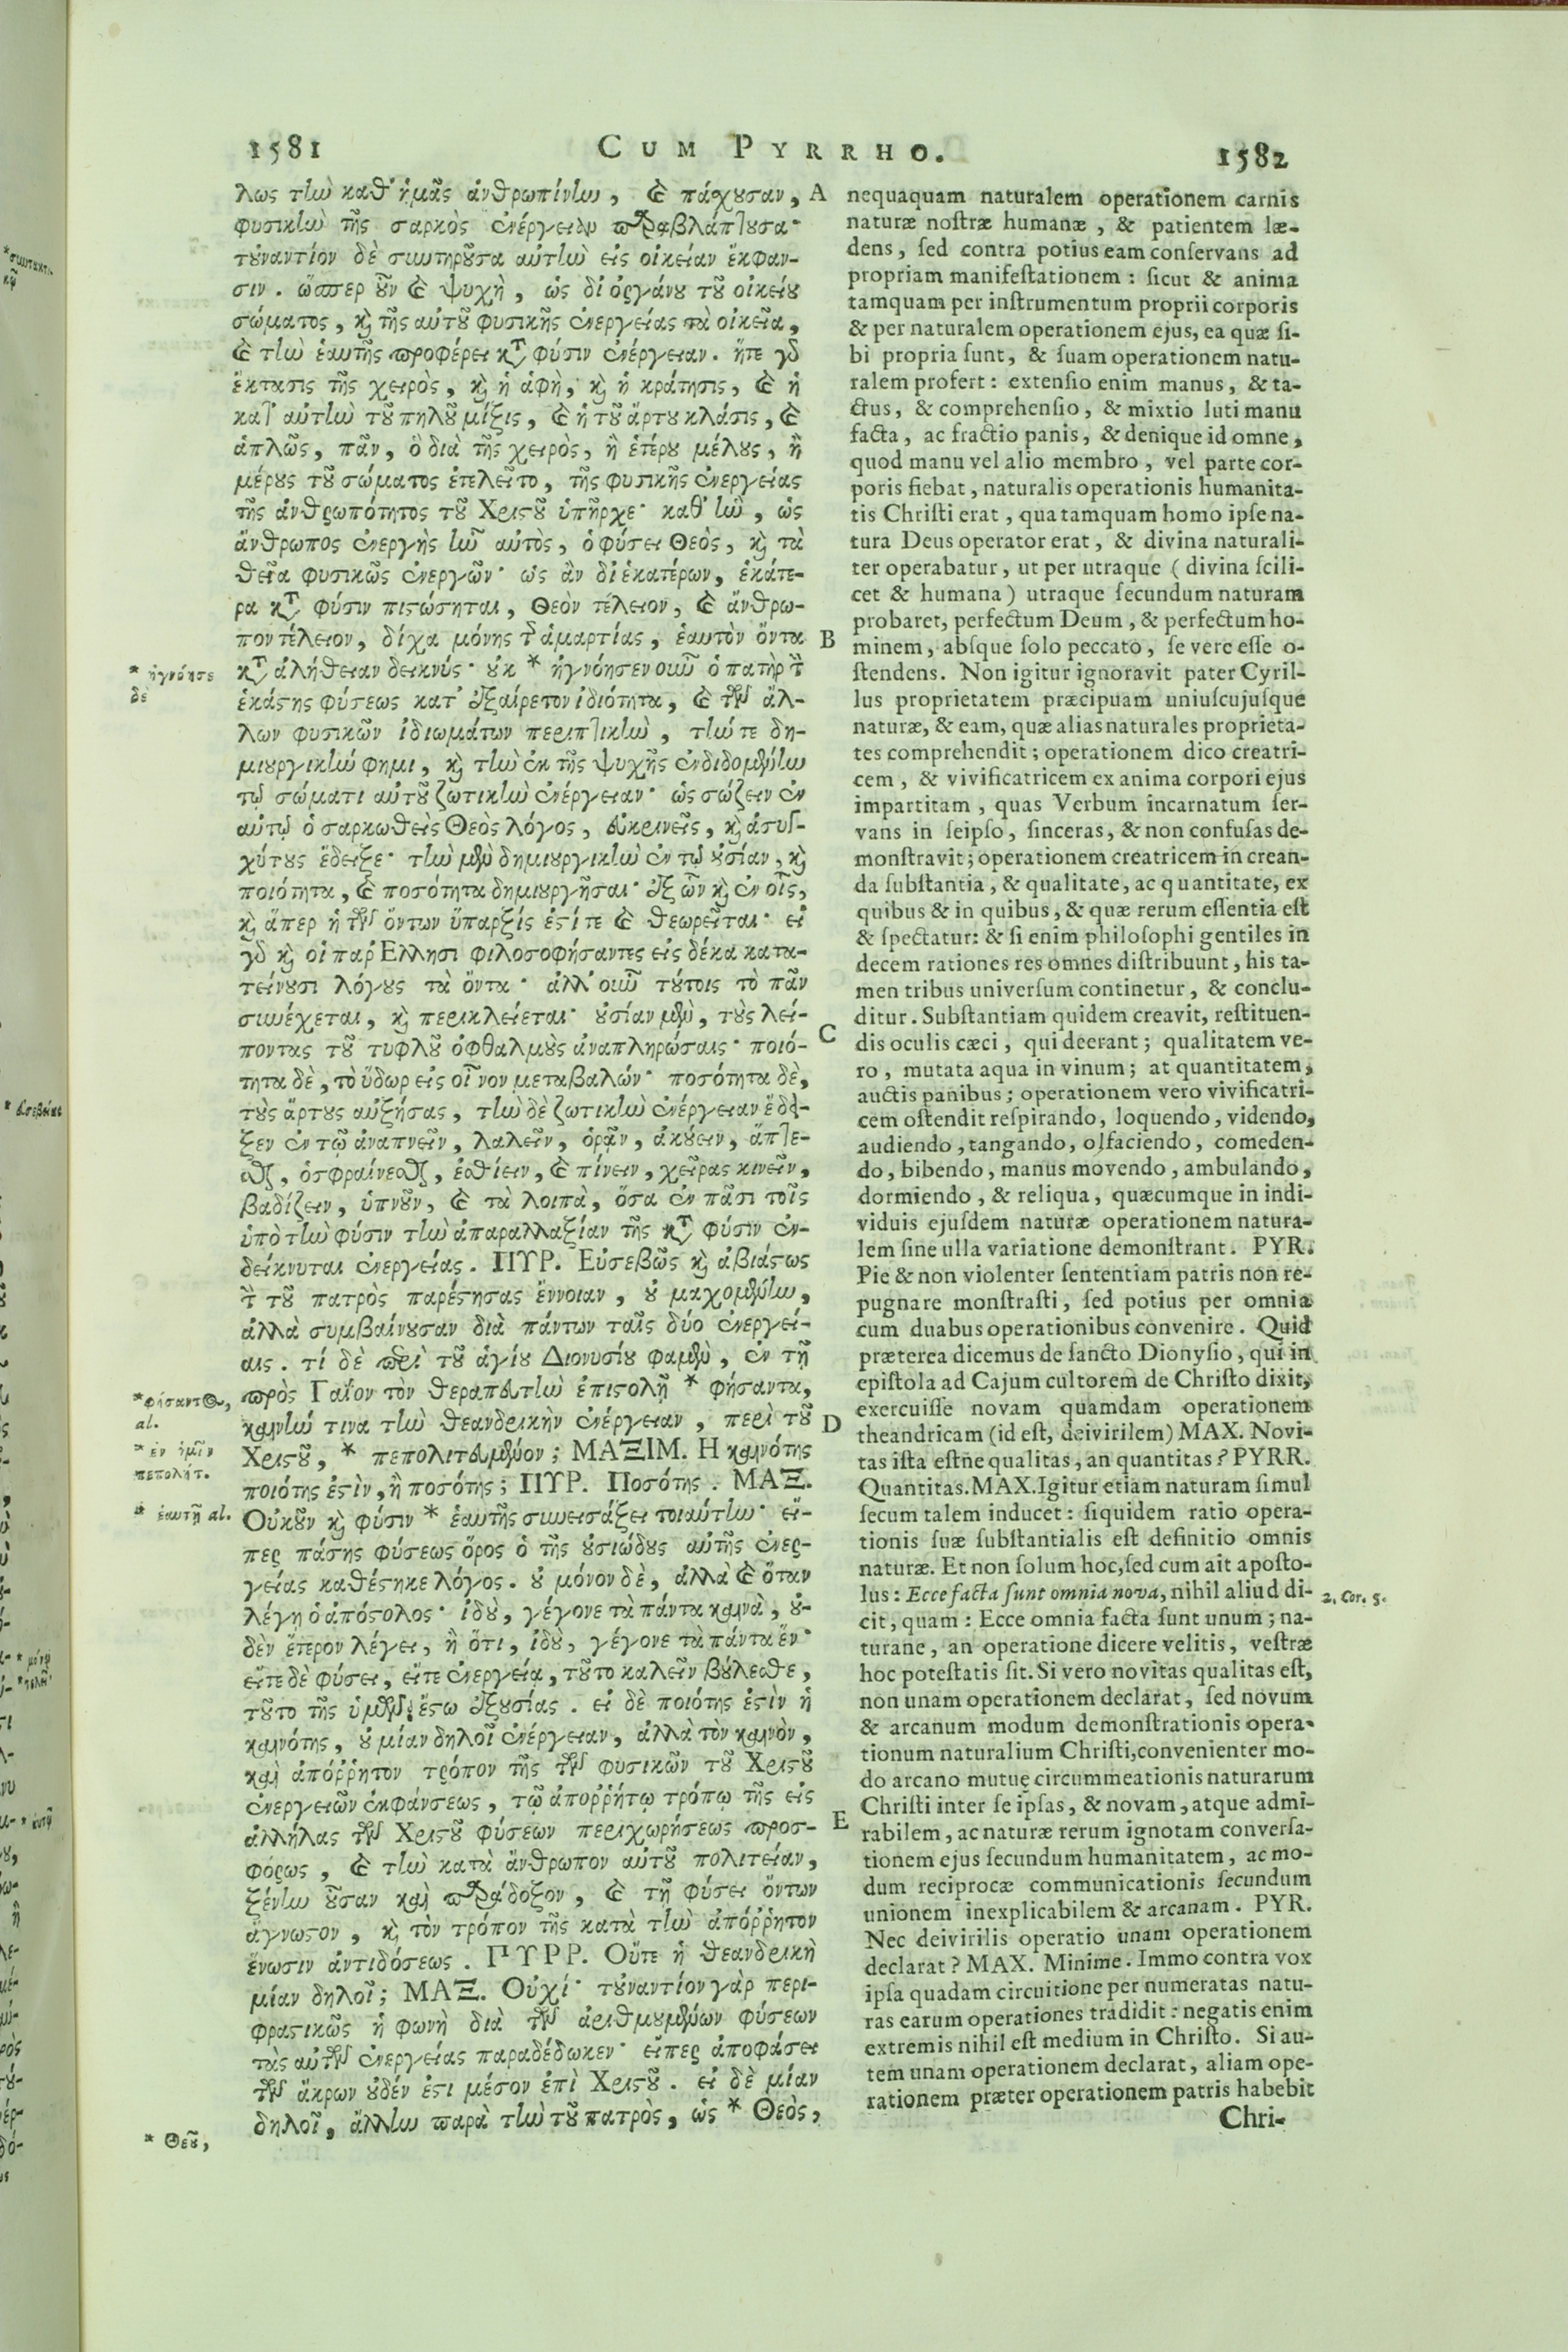 1581
CUM PYRRHO.
1582
λως τὴν καθ' ἡμᾶς ἀνθρωπίνην, καὶ πάσχουσαν,
φυσικὴν τῆς σαρκὸς ἐνέργειαν παραβλάπτουσα·
τοὐναντίον δὲ συντηροῦσα αὐτὴν εἰς οἰκείαν ἔκφαν-
σιν. ὥσπερ οὖν καὶ ψυχὴ, ὡς δι' ὀργάνου τοῦ οἰκείου
σώματος, καὶ τῆς αὐτοῦ φυσικῆς ἐνεργείας τὰ οἰκεῖα,
καὶ τὴν ἑαυτῆς προφέρει κατὰ φύσιν ἐνέργειαν. ἥτε γὰρ
ἔκτασις τῆς χειρὸς, καὶ ἡ ἁφὴ, καὶ ἡ κράτησις, καὶ ἡ
κατ' αὐτὴν τοῦ πηλοῦ μίξις, καὶ ἡ τοῦ ἄρτου κλάσις, καὶ
ἁπλῶς, πᾶν, ὃ διὰ τῆς χειρὸς, ἢ ἑτέρου μέλους, ἢ
μέρους τοῦ σώματος ἐτελεῖτο, τῆς φυσικῆς ἐνεργείας
τῆς ἀνθρωπότητος τοῦ Χριστοῦ ὑπῆρχε· καθ' ἣν, ὡς
ἄνθρωπος ἐνεργὴς ἦν αὐτὸς, ὁ φύσει Θεὸς, καὶ τὰ
θεῖα φυσικῶς ἐνεργῶν· ὡς ἂν δι' ἑκατέρων, ἑκάτε-
ρα κατὰ φύσιν πιστώσηται, Θεὸν τέλειον, καὶ ἄνθρω-
πον τέλειον, δίχα μόνης τῆς ἁμαρτίας, ἑαυτὸν ὄντα
κατὰ ἀλήθειαν δεικνύς· οὐκ * ἠγνόησεν οὖν ὁ πατὴρ τὴν
ἑκάστης φύσεως κατ' ἐξαίρετον ἰδιότητα, καὶ τῶν ἄλ-
λων φυσικῶν ἰδιωμάτων περιπτικὴν, τήν τε δη-
μιουργικήν φημι, καὶ τὴν ἐκ τῆς ψυχῆς ἐνδιδομένην
τῷ σώματι αὐτοῦ ζωτικὴν ἐνέργειαν· ὡς σώζειν ἐν
αὐτῷ ὁ σαρκωθεὶς Θεὸς λόγος, εὐκρινεῖς, καὶ ἀσυγ-
χύτους ἔδειξε· τὴν μὲν δημιουργικὴν ἐν τῷ οὐσίαν, καὶ
ποιότητα, καὶ ποσότητα δημιουργῆσαι· ἐξ ὧν καὶ ἐν οἷς,
καὶ ἅπερ ἡ τῶν ὄντων ὕπαρξίς ἐστί τε καὶ θεωρεῖται· εἰ
γὰρ καὶ οἱ παρ' Ελλησι φιλοσοφήσαντες εἰς δέκα κατα-
τείνουσι λόγους τὰ ὄντα· ἀλλ' οὖν τούτοις τὸ πᾶν
συνέχεται, καὶ περικλείεται· οὐσίαν μὲν, τοὺς λεί-
ποντας τοῦ τυφλοῦ ὀφθαλμοὺς ἀναπληρώσαις· ποιό-
τητα δὲ, τὸ ὕδωρ εἰς οἶνον μεταβαλών· ποσότητα δὲ,
τοὺς ἄρτους αὐξήσας, τὴν δὲ ζωτικὴν ἐνέργειαν ἔδει-
ξεν ἐν τῷ ἀναπνεῖν, λαλεῖν, ὁρᾷν, ἀκούειν, ἅπτε-
σθαι, ὀσφραίνεσθαι, ἐσθίειν, καὶ πίνειν, χεῖρας κινεῖν,
βαδίζειν, ὑπνοῦν, καὶ τὰ λοιπὰ, ὅσα ἐν πᾶσι τοῖς
ὑπὸ τὴν φύσιν τὴν ἀπαραλλαξίαν τῆς κατὰ φύσιν ἐν-
δείκνυται ἐνεργείας. ΠΥΡ. Εὐσεβῶς καὶ ἀβιάστως
τὴν τοῦ πατρὸς παρέστησας ἔννοιαν, οὐ μαχομένην,
ἀλλὰ συμβαίνουσαν διὰ πάντων ταῖς δύο ἐνεργεί-
αις. τί δὲ περὶ τοῦ ἁγίου Διονυσίου φαμὲν, ἐν τῇ
πρὸς Γαΐον τὸν θεραπευτὴν ἐπιστολῇ * φήσαντα,
καινήν τινα τὴν θεανδρικὴν ἐνέργειαν, περὶ τοῦ
Χριστοῦ, * πεπολιτευμένον; ΜΑΞΙΜ. Η καινότης
ποιότης ἐστὶν, ἢ ποσότης; ΠΥΡ. Ποσότης. ΜΑΞ.
Οὐκοῦν καὶ φύσιν * ἑαυτῆς συνεισάξει τοιαύτην· εἴ-
περ πάσης φύσεως ὅρος ὁ τῆς οὐσιώδους αὐτῆς ἐνερ-
γείας καθέστηκε λόγος. οὐ μόνον δὲ, ἀλλὰ καὶ ὅταν
λέγῃ ὁ ἀπόστολος· ἰδοὺ, γέγονε τὰ πάντα καινὰ, οὐ-
δὲν ἕτερον λέγει, ἢ ὅτι, ἰδοὺ, γέγονε τὰ πάντα ἕν·
εἴτε δὲ φύσει, εἴτε ἐνεργείᾳ, τοῦτο καλεῖν βούλεσθε,
τοῦτο τῆς ὑμῶν ἔστω ἐξουσίας. εἰ δὲ ποιότης ἐστὶν ἡ
καινότης, οὐ μίαν δηλοῖ ἐνέργειαν, ἀλλὰ τὸν καινὸν,
καὶ ἀπόῤῥητον τρόπον τῆς τῶν φυσικῶν τοῦ Χριστοῦ
ἐνεργειῶν ἐκφάνσεως, τῷ ἀποῤῥήτῳ τρόπῳ τῆς εἰς
ἀλλήλας τῶν Χριστοῦ φύσεων περιχωρήσεως προσ-
φόρως, καὶ τὴν κατὰ ἄνθρωπον αὐτοῦ πολιτείαν,
ξένην οὖσαν καὶ παράδοξον, καὶ τῇ φύσει ὄντων
ἄγνωστον, καὶ τὸν τρόπον τῆς κατὰ τὴν ἀπόῤῥητον
ἕνωσιν ἀντιδόσεως. ΠΥΡΡ. Οὔτε ἡ θεανδρικὴ
μίαν δηλοῖ; ΜΑΞ. Οὐχί· τοὐναντίον γὰρ περι-
φραστικῶς ἡ φωνὴ διὰ τῶν ἀριθμουμένων φύσεων
τὰς αὐτῶν ἐνεργείας παραδέδωκεν· εἴπερ ἀποφάσει
τῶν ἄκρων οὐδέν ἐστι μέσον ἐπὶ Χριστοῦ. εἰ δὲ μίαν
δηλοῖ, ἄλλην παρὰ τὴν τοῦ πατρὸς, ὡς * Θεὸς,
* ἠγνόησε
δὲ
*φήσαντος,
al.
* ἐν ἡμῖν
πεπολίτ.
* ἑαυτῇ al.
* Θεοῦ,
A
B
C
D
E
nequaquam naturalem operationem carnis
naturæ noſtræ humanæ, & patientem læ-
dens, ſed contra potius eam conſervans ad
propriam manifeſtationem: ſicut & anima
tamquam per inſtrumentum proprii corporis
& per naturalem operationem ejus, ea quæ ſi-
bi propria ſunt, & ſuam operationem natu-
ralem profert: extenſio enim manus, & ta-
ctus, & comprehenſio, & mixtio luti manu
facta, ac fractio panis, & denique id omne,
quod manu vel alio membro, vel parte cor-
poris fiebat, naturalis operationis humanita-
tis Chriſti erat, qua tamquam homo ipſe na-
tura Deus operator erat, & divina naturali-
ter operabatur, ut per utraque (divina ſcili-
cet & humana) utraque ſecundum naturam
probaret, perfectum Deum, & perfectum ho-
minem, abſque ſolo peccato, ſe vere eſſe o-
ſtendens. Non igitur ignoravit pater Cyril-
lus proprietatem præcipuam uniuſcujuſque
naturæ, & eam, quæ alias naturales proprieta-
tes comprehendit; operationem dico creatri-
cem, & vivificatricem ex anima corpori ejus
impartitam, quas Verbum incarnatum ſer-
vans in ſeipſo, ſinceras, & non confuſas de-
monſtravit; operationem creatricem in crean-
da ſubſtantia, & qualitate, ac quantitate, ex
quibus & in quibus, & quæ rerum eſſentia eſt
& ſpectatur: & ſi enim philoſophi gentiles in
decem rationes res omnes diſtribuunt, his ta-
men tribus univerſum continetur, & conclu-
ditur. Subſtantiam quidem creavit, reſtituen-
dis oculis cæci, qui deerant; qualitatem ve-
ro, mutata aqua in vinum; at quantitatem,
auctis panibus; operationem vero vivificatri-
cem oſtendit reſpirando, loquendo, videndo,
audiendo, tangando, olfaciendo, comeden-
do, bibendo, manus movendo, ambulando,
dormiendo, & reliqua, quæcumque in indi-
viduis ejuſdem naturæ operationem natura-
lem ſine ulla variatione demonſtrant. PYR.
Pie & non violenter ſententiam patris non re-
pugnare monſtraſti, ſed potius per omnia
cum duabus operationibus convenire. Quid
præterea dicemus de ſancto Dionyſio, qui in
epiſtola ad Cajum cultorem de Chriſto dixit,
exercuiſſe novam quamdam operationem
theandricam (id eſt, deivirilem) MAX. Novi-
tas iſta eſtne qualitas, an quantitas? PYRR.
Quantitas. MAX. Igitur etiam naturam ſimul
ſecum talem inducet: ſiquidem ratio opera-
tionis ſuæ ſubſtantialis eſt definitio omnis
naturæ. Et non ſolum hoc, ſed cum ait apoſto-
lus: Ecce facta ſunt omnia nova, nihil aliud di-
cit, quam: Ecce omnia facta ſunt unum; na-
turane, an operatione dicere velitis, veſtræ
hoc poteſtatis ſit. Si vero novitas qualitas eſt,
non unam operationem declarat, ſed novum
& arcanum modum demonſtrationis opera-
tionum naturalium Chriſti, convenienter mo-
do arcano mutuę circummeationis naturarum
Chriſti inter ſe ipſas, & novam, atque admi-
rabilem, ac naturæ rerum ignotam converſa-
tionem ejus ſecundum humanitatem, ac mo-
dum reciprocæ communicationis ſecundum
unionem inexplicabilem & arcanam. PYR.
Nec deivirilis operatio unam operationem
declarat? MAX. Minime. Immo contra vox
ipſa quadam circuitione per numeratas natu-
ras earum operationes tradidit: negatis enim
extremis nihil eſt medium in Chriſto. Si au-
tem unam operationem declarat, aliam ope-
rationem præter operationem patris habebit
Chri-
2. Cor. 5.